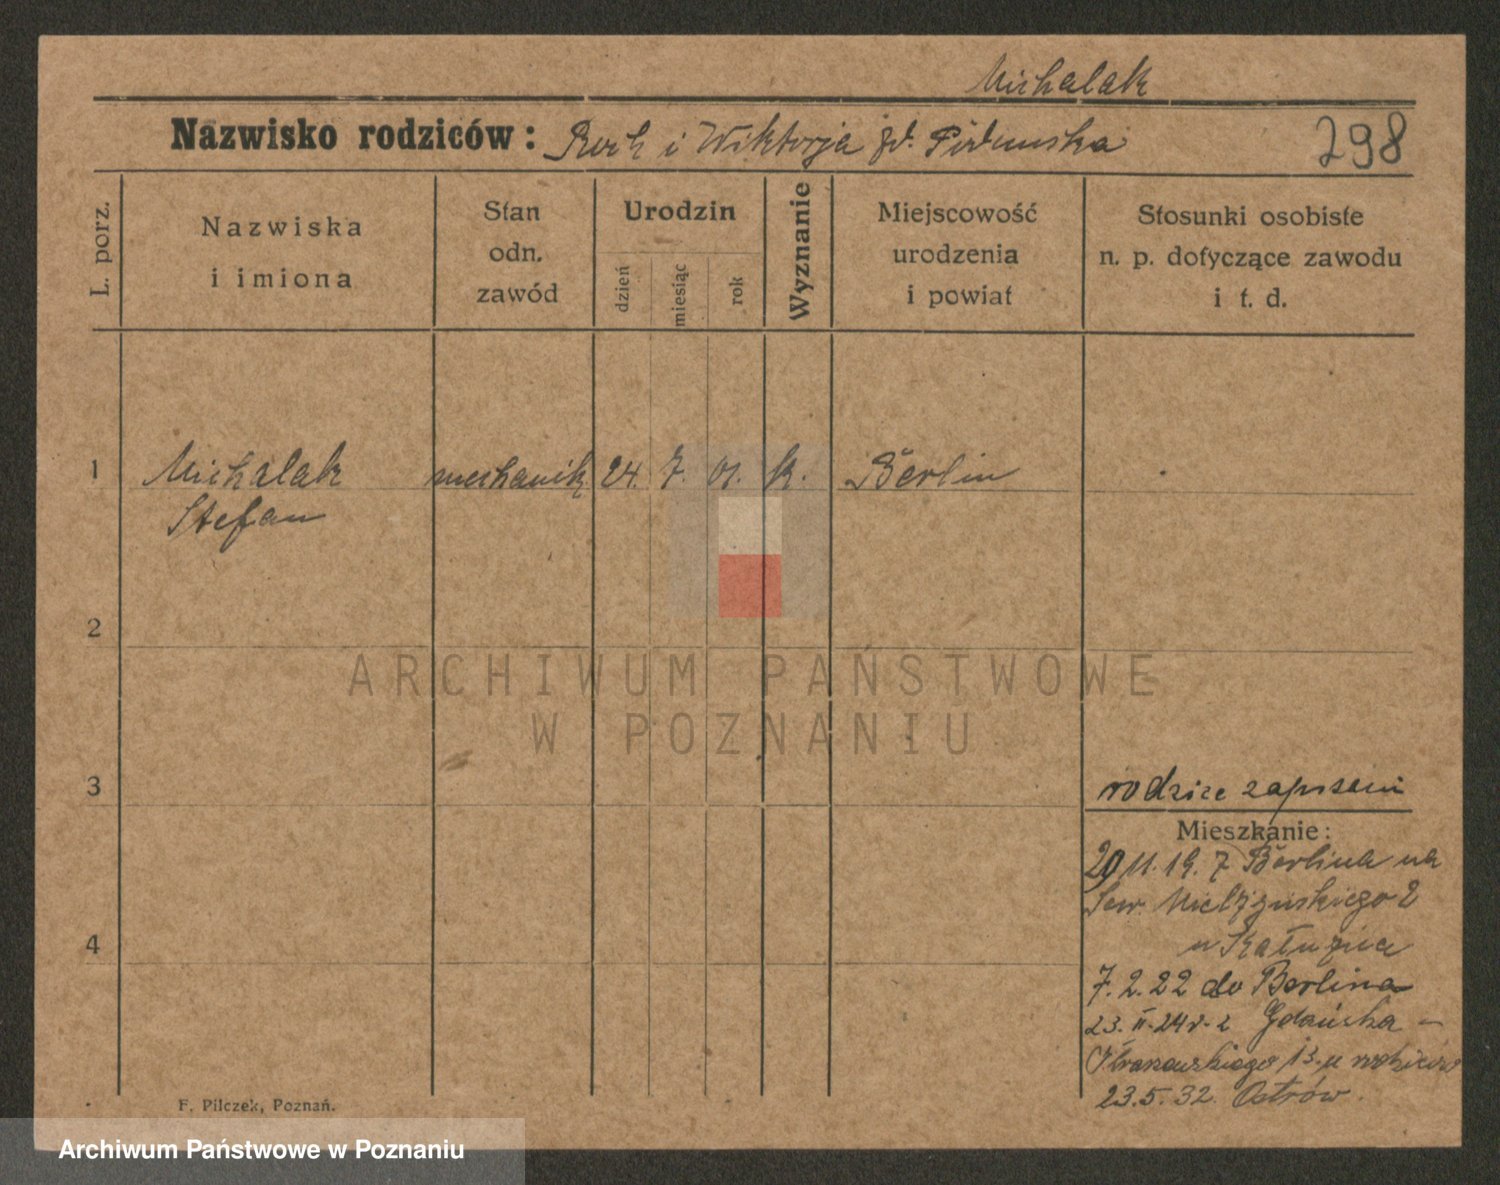 Michalak
Nazwisko rodziców: Roch i Wiktorja zd.
298
L. porz.
Nazwiska
i imiona
Stan
odn.
zawód
Urodzin
dzień
miesiąc
rok
Wyznanie
Miejscowość
urodzenia
i powiat
Stosunki osobiste
n. p. dotyczące zawodu
i t. d.
1 Michalak mechanik 24. 7. 01. k. Berlin
Stefan
2
ARCHIWUM PAŃSTWOWE
W POZNANIU
3
rodzice zapisani
Mieszkanie:
20 11. 19. z Berlina na
Sew. Mielżyńskiego 2
u
4
7. 2. 22 do Berlina
23. II. 24 r. z Gdańska –
13. u
23. 5. 32. Ostrów.
F. Pilczek, Poznań.
Archiwum Państwowe w Poznaniu